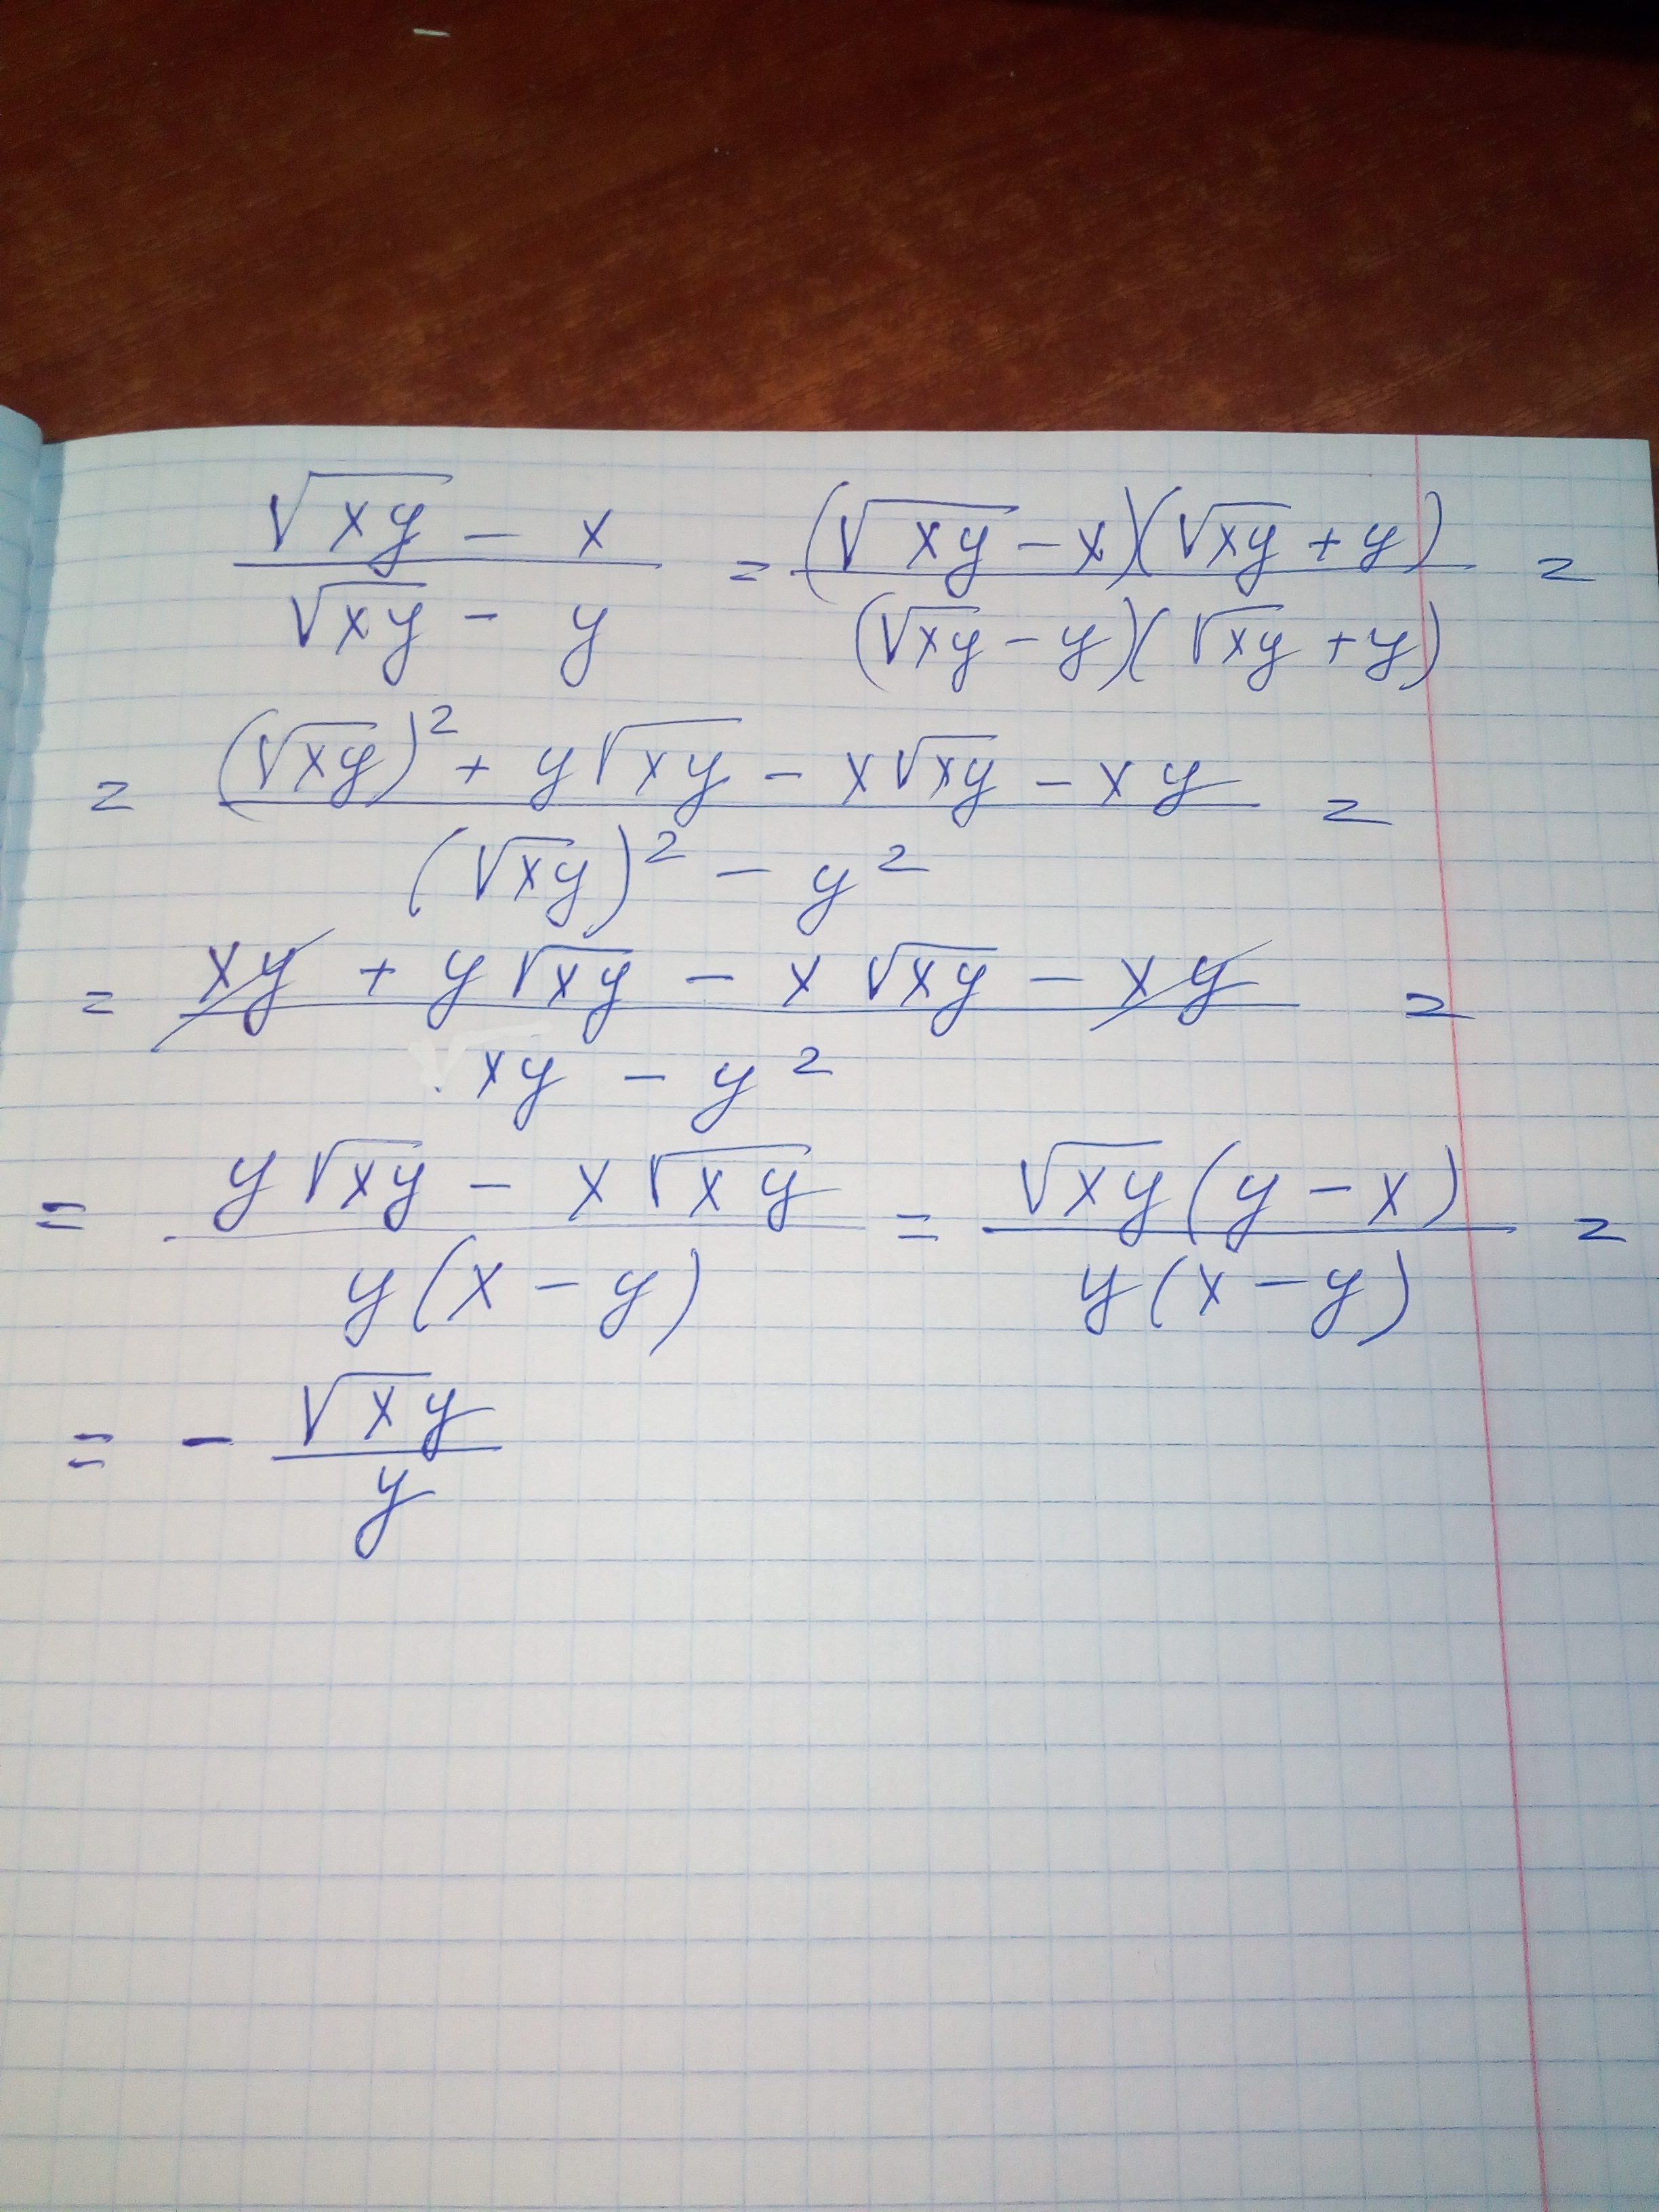 (√xy − x)/(√xy − y) = ((√xy − x)(√xy + y))/((√xy − y)(√xy + y)) =
= ((√xy)² + y√xy − x√xy − xy)/((√xy)² − y²) =
= (xy + y√xy − x√xy − xy)/(xy − y²) =
= (y√xy − x√xy)/(y(x − y)) = (√xy(y − x))/(y(x − y)) =
= − √xy/y